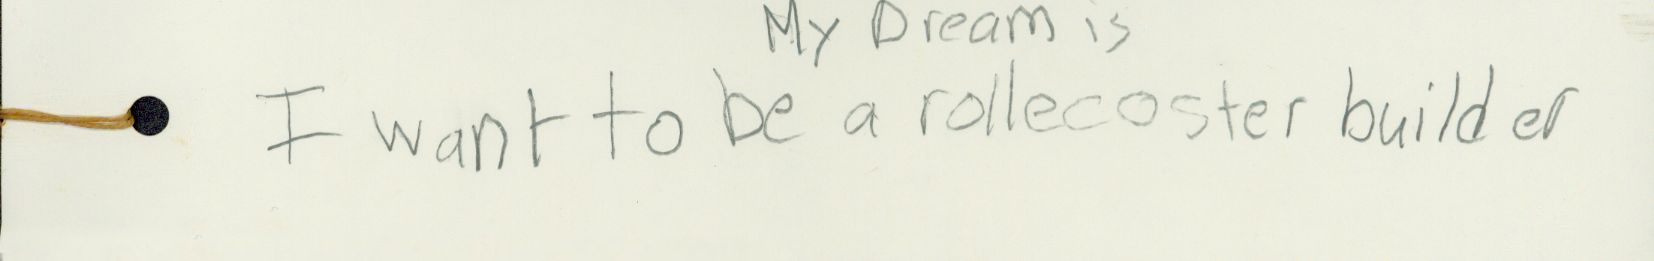 My Dream is
I want to be a rollecoster builder